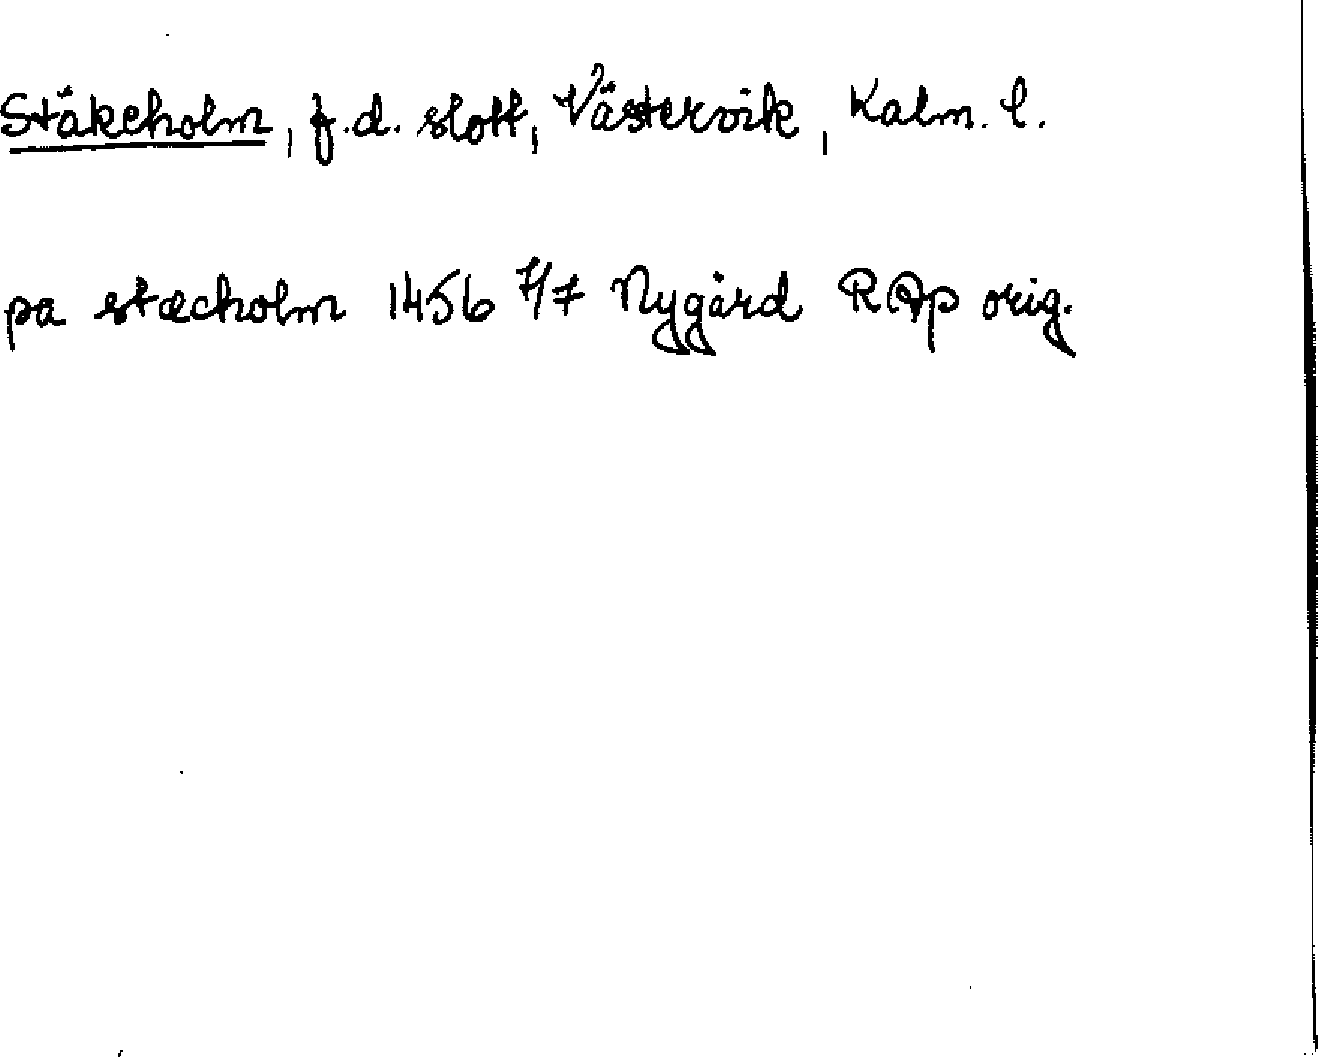 Stäkeholm, f.d. slott, Västervik, Kalm. l.
pa stæcholm 1456 7/7 Nygård RAp orig.